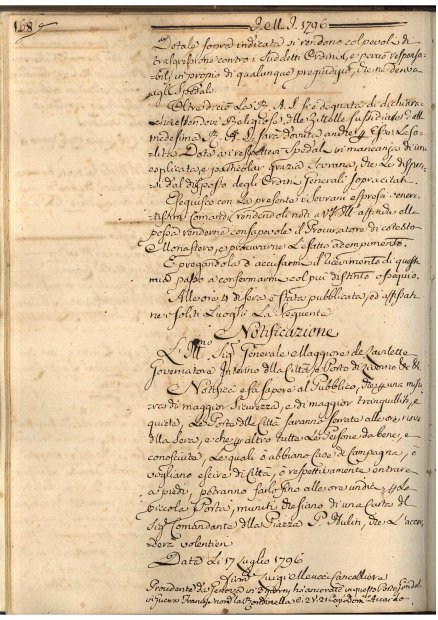 168 J.M.J. 1796
Dotale sopra indicata si rendono colpevoli di
trasgressione contro i suddetti Ordini, e perciò responsa-
bili in proprio di qualunque pregiudizio, che ne derivi
agli Spedali
Oltre di ciò La R. A. S. si è degnata di dichiarare
che essendovi Religiose, o Zittelle sussidiate d alla
medesima R. A. S. sarà dovuta anche p esse La so-
lita Dota ai respettivi Spedali in mancanza di una
esplicata, e particolar grazia Sovrana, che Le dispen-
si dal disposto degli Ordini Generali sopracitati
Eseguisco con La presente i Sovrani espressi vene-
ratissimi Comandi rendendoli noti a V.S. Ill. affinchè ella
possa renderne consapevole il Procuratore di cotesto
Monastero, e procurarne Le fatto adempimento,
E pregandola d accusarmi il ricevimento di questa
mia passo a confermarmi col più distinto ossequio.
Alle ore 4 di sera è stata pubblicata, ed affissa
ne i soliti Luoghi La seguente
Notificazione
L Ill.mo Sig. Generale Maggiore de Lavilette
Governatore Interino della Città, e Porto di Livorno &c &c
Notifica, e fa sapere al Pubblico, che p una mi-
sura di maggior Sicurezza, e di maggior tranquillità, e
quiete, Le Porte della Città saranno serrate alle ore nove
della sera, e che p altro tutte Le Persone da bene, e
conosciute, Le quali o abbiano Case di Campagna, o
vogliano escire di Città, o respettivamente entrare
a piedi, potranno farlo fino alle ore undici p La
piccola Porta, muniti che siano di una Carta del
Sig. Comandante della Piazza P. Hulin, che L accor-
derà volentieri
Data Li 17 Luglio 1796
Firm. Luigi Meucci Cancelliere
Procedente da Genova in 2 giorni ha ancorato in questo Porto